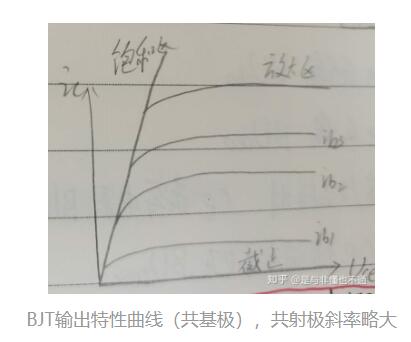 饱和区
放大区
ic
ib3
ib2
ib1
截止
知乎 @是与非懂也不能
BJT输出特性曲线（共基极），共射极斜率略大